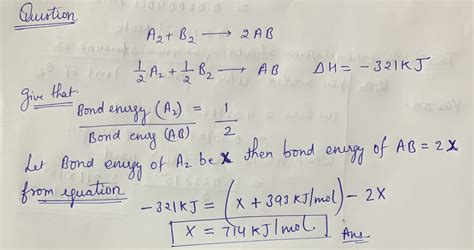 Question
A₂ + B₂ ⟶ 2AB
½ A₂ + ½ B₂ ⟶ AB   ΔH = -321KJ
Give that
Bond enusgy (A₂) / Bond enusg (AB) = 1/2
Let Bond enusgy of A₂ be X then bond enusgy of AB = 2X
from equation
-321KJ = (X + 393 KJ/mol) - 2X
X = 714 KJ/mol. Ans